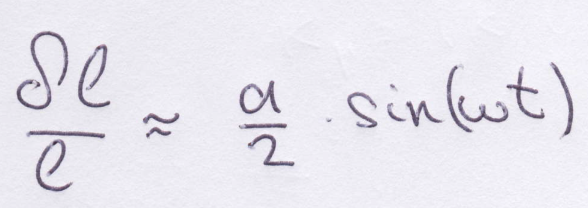 δℓ/ℓ ≈ a/2 · sin(ωt)